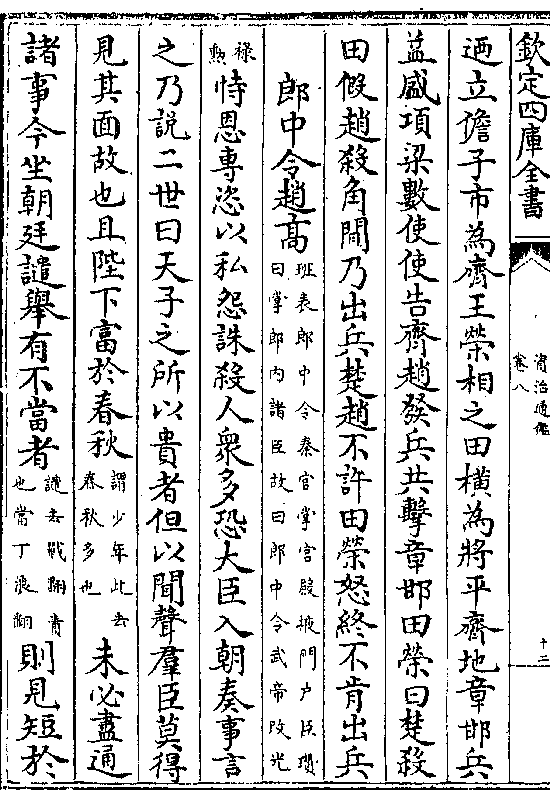 欽定四庫全書
資治通鑑
卷八
十三
迺立儋子市為齊王榮相之田橫為將平齊地章邯兵
益盛項梁數使使告齊趙發兵共擊章邯田榮曰楚殺
田假趙殺角間乃出兵楚趙不許田榮怒終不肯出兵
郎中令趙高班表郎中令秦官掌宮殿掖門户臣瓚
曰掌郎内諸臣故曰郎中令武帝改光
禄
勲恃恩專恣以私怨誅殺人衆多恐大臣入朝奏事言
之乃說二世曰天子之所以貴者但以聞聲羣臣莫得
見其面故也且陛下富於春秋謂少年此去
春秋多也未必盡通
諸事今坐朝廷譴舉有不當者譴去戰翻責
也當丁浪翻則見短於